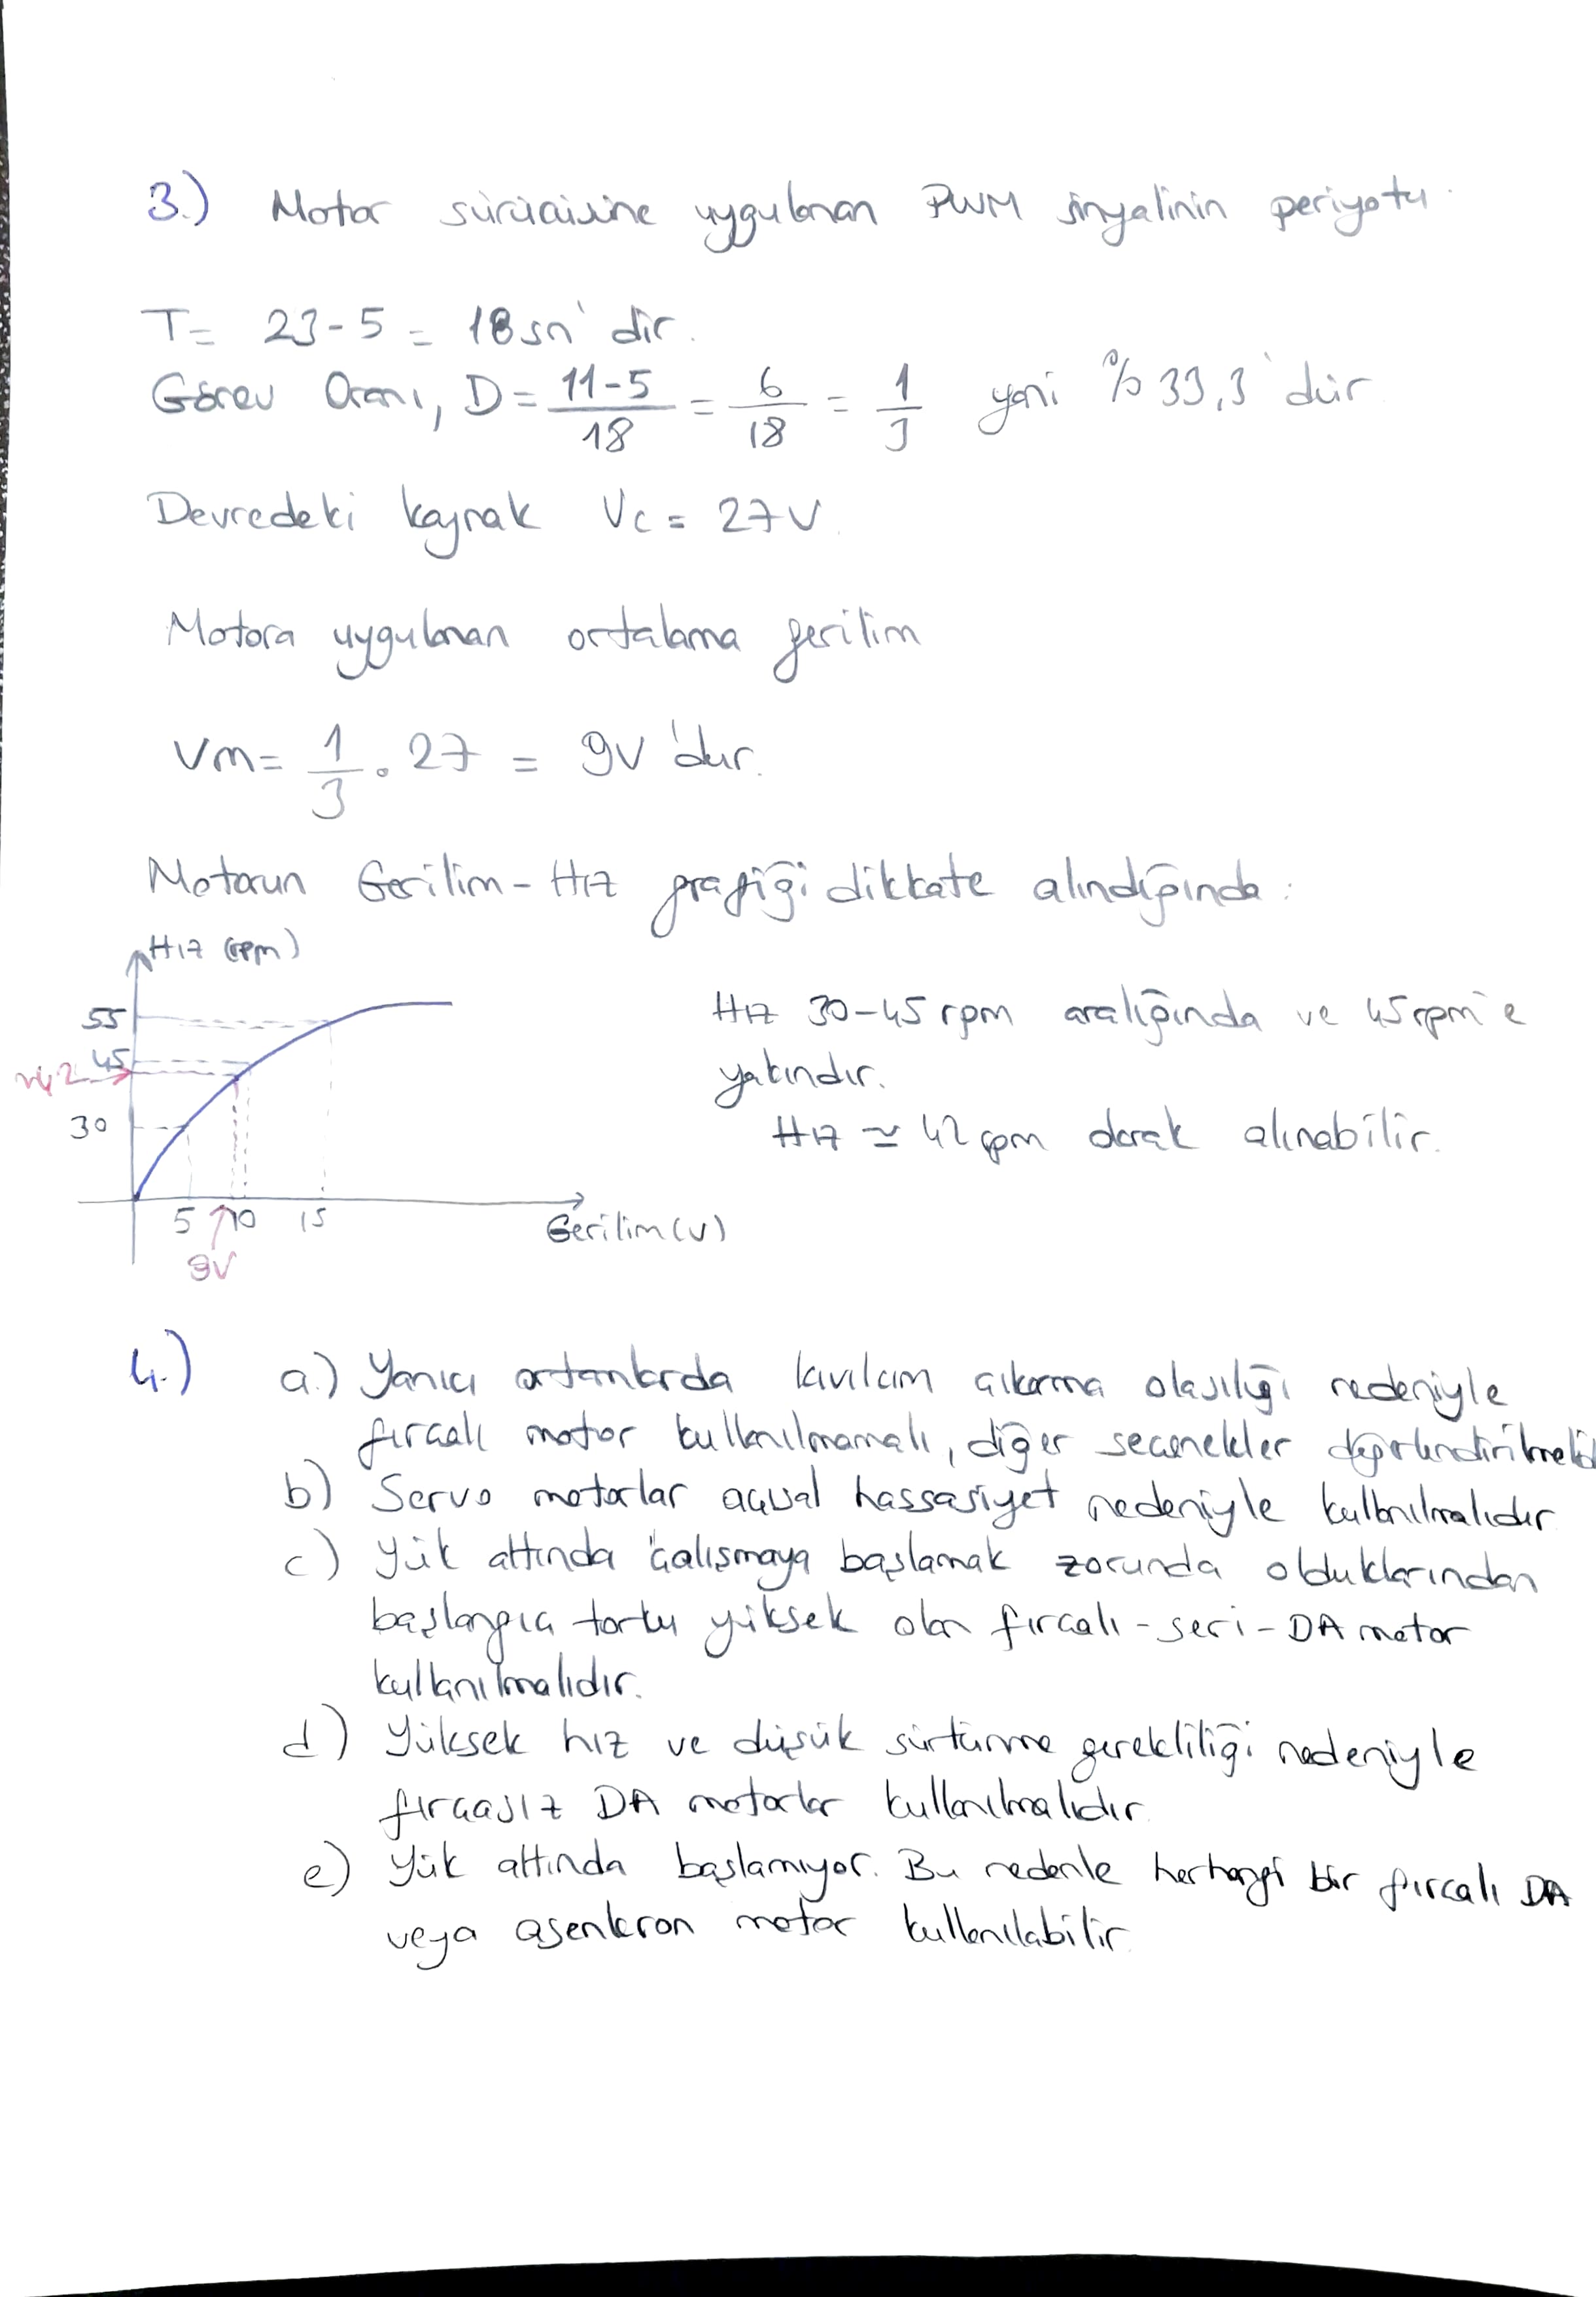 3.) Motor sürücüsüne uygulanan PWM sinyalinin periyotu
T= 23-5 = 18 sn' dir.
Görev Oranı, D = 11-5/18 = 6/18 = 1/3 yani %33,3'dür
Devredeki kaynak Vc = 27V
Motora uygulanan ortalama gerilim
Vm = 1/3 . 27 = 9V'dur.
Motorun Gerilim-Hız grafiği dikkate alındığında:
Hız (rpm)
55
45
~42
30
5 10 15
9V
Gerilim (V)
Hız 30-45 rpm aralığında ve 45 rpm'e
yakındır.
Hız ≃ 42 rpm olarak alınabilir.
4.) a.) Yanıcı ortamlarda kıvılcım çıkarma olasılığı nedeniyle
fırçalı motor kullanılmamalı, diğer seçenekler değerlendirilmelid
b) Servo motorlar açısal hassasiyet nedeniyle kullanılmalıdır
c) Yük altında çalışmaya başlamak zorunda olduklarından
başlangıç torku yüksek olan fırçalı-seri-DA motor
kullanılmalıdır.
d) Yüksek hız ve düşük sürtünme gerekliliği nedeniyle
fırçasız DA motorlar kullanılmalıdır
e) Yük altında başlamıyor. Bu nedenle herhangi bir fırçalı DA
veya asenkron motor kullanılabilir